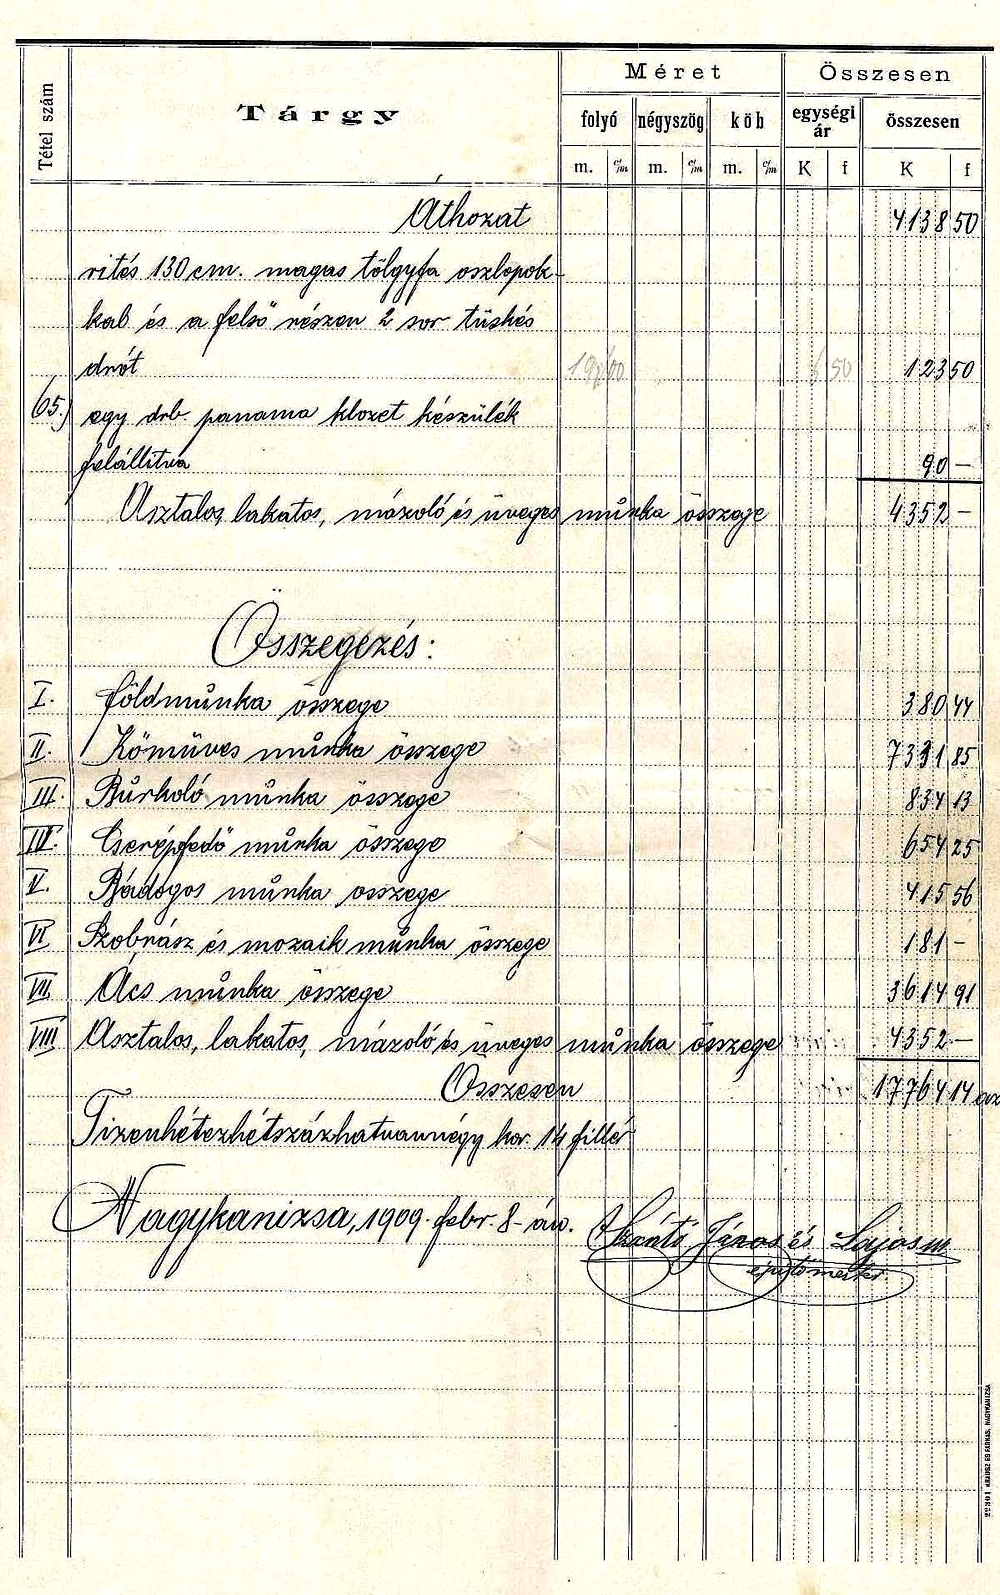 Tétel szám
Tárgy
Méret
Összesen
folyó négyszög köb egységi ár összesen
m. c/m m. c/m m. c/m K f K f
Áthozat 4138 50
rités 130 cm. magas tölgyfa oszlopok-
kal és a felső részen 2 sor tüskés
drót 19 00 6 50 123 50
65.) egy drb. panama klozet készülék
felállitva 90 —
Asztalos, lakatos, mázoló és üveges munka összege 4352 —
Összegezés:
I. Földmunka összege 380 44
II. Kömüves munka összege 7331 85
III. Burkoló munka összege 834 13
IV. Cserépfedő munka összege 654 25
V. Bádogos munka összege 415 56
VI. Szobrász és mozaik munka összege 181 —
VII. Ács munka összege 3614 91
VIII. Asztalos, lakatos, mázoló és üveges munka összege 4352 —
Összesen 17764 14 az
Tizenhétezerhétszázhatvannégy kor. 14 fillér
Nagykanizsa, 1909. febr. 8-án.
Szántó János és Lajos
épitőmester
KRAUSZ ÉS FARKAS, NAGYKANIZSA